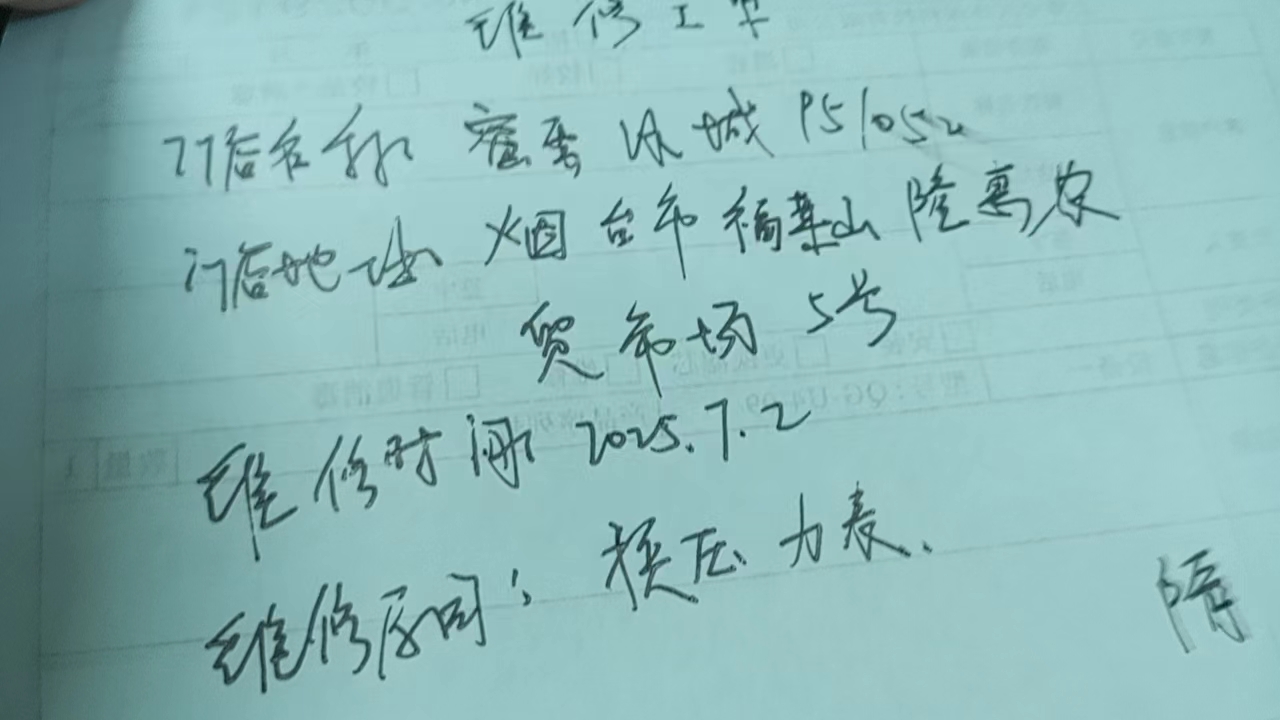 维修工单
门店名称 蜜雪冰城 P51052
门店地址 烟台市福莱山隆离农
贸市场 5号
维修时间 2025.7.2
维修原因: 换压力表.